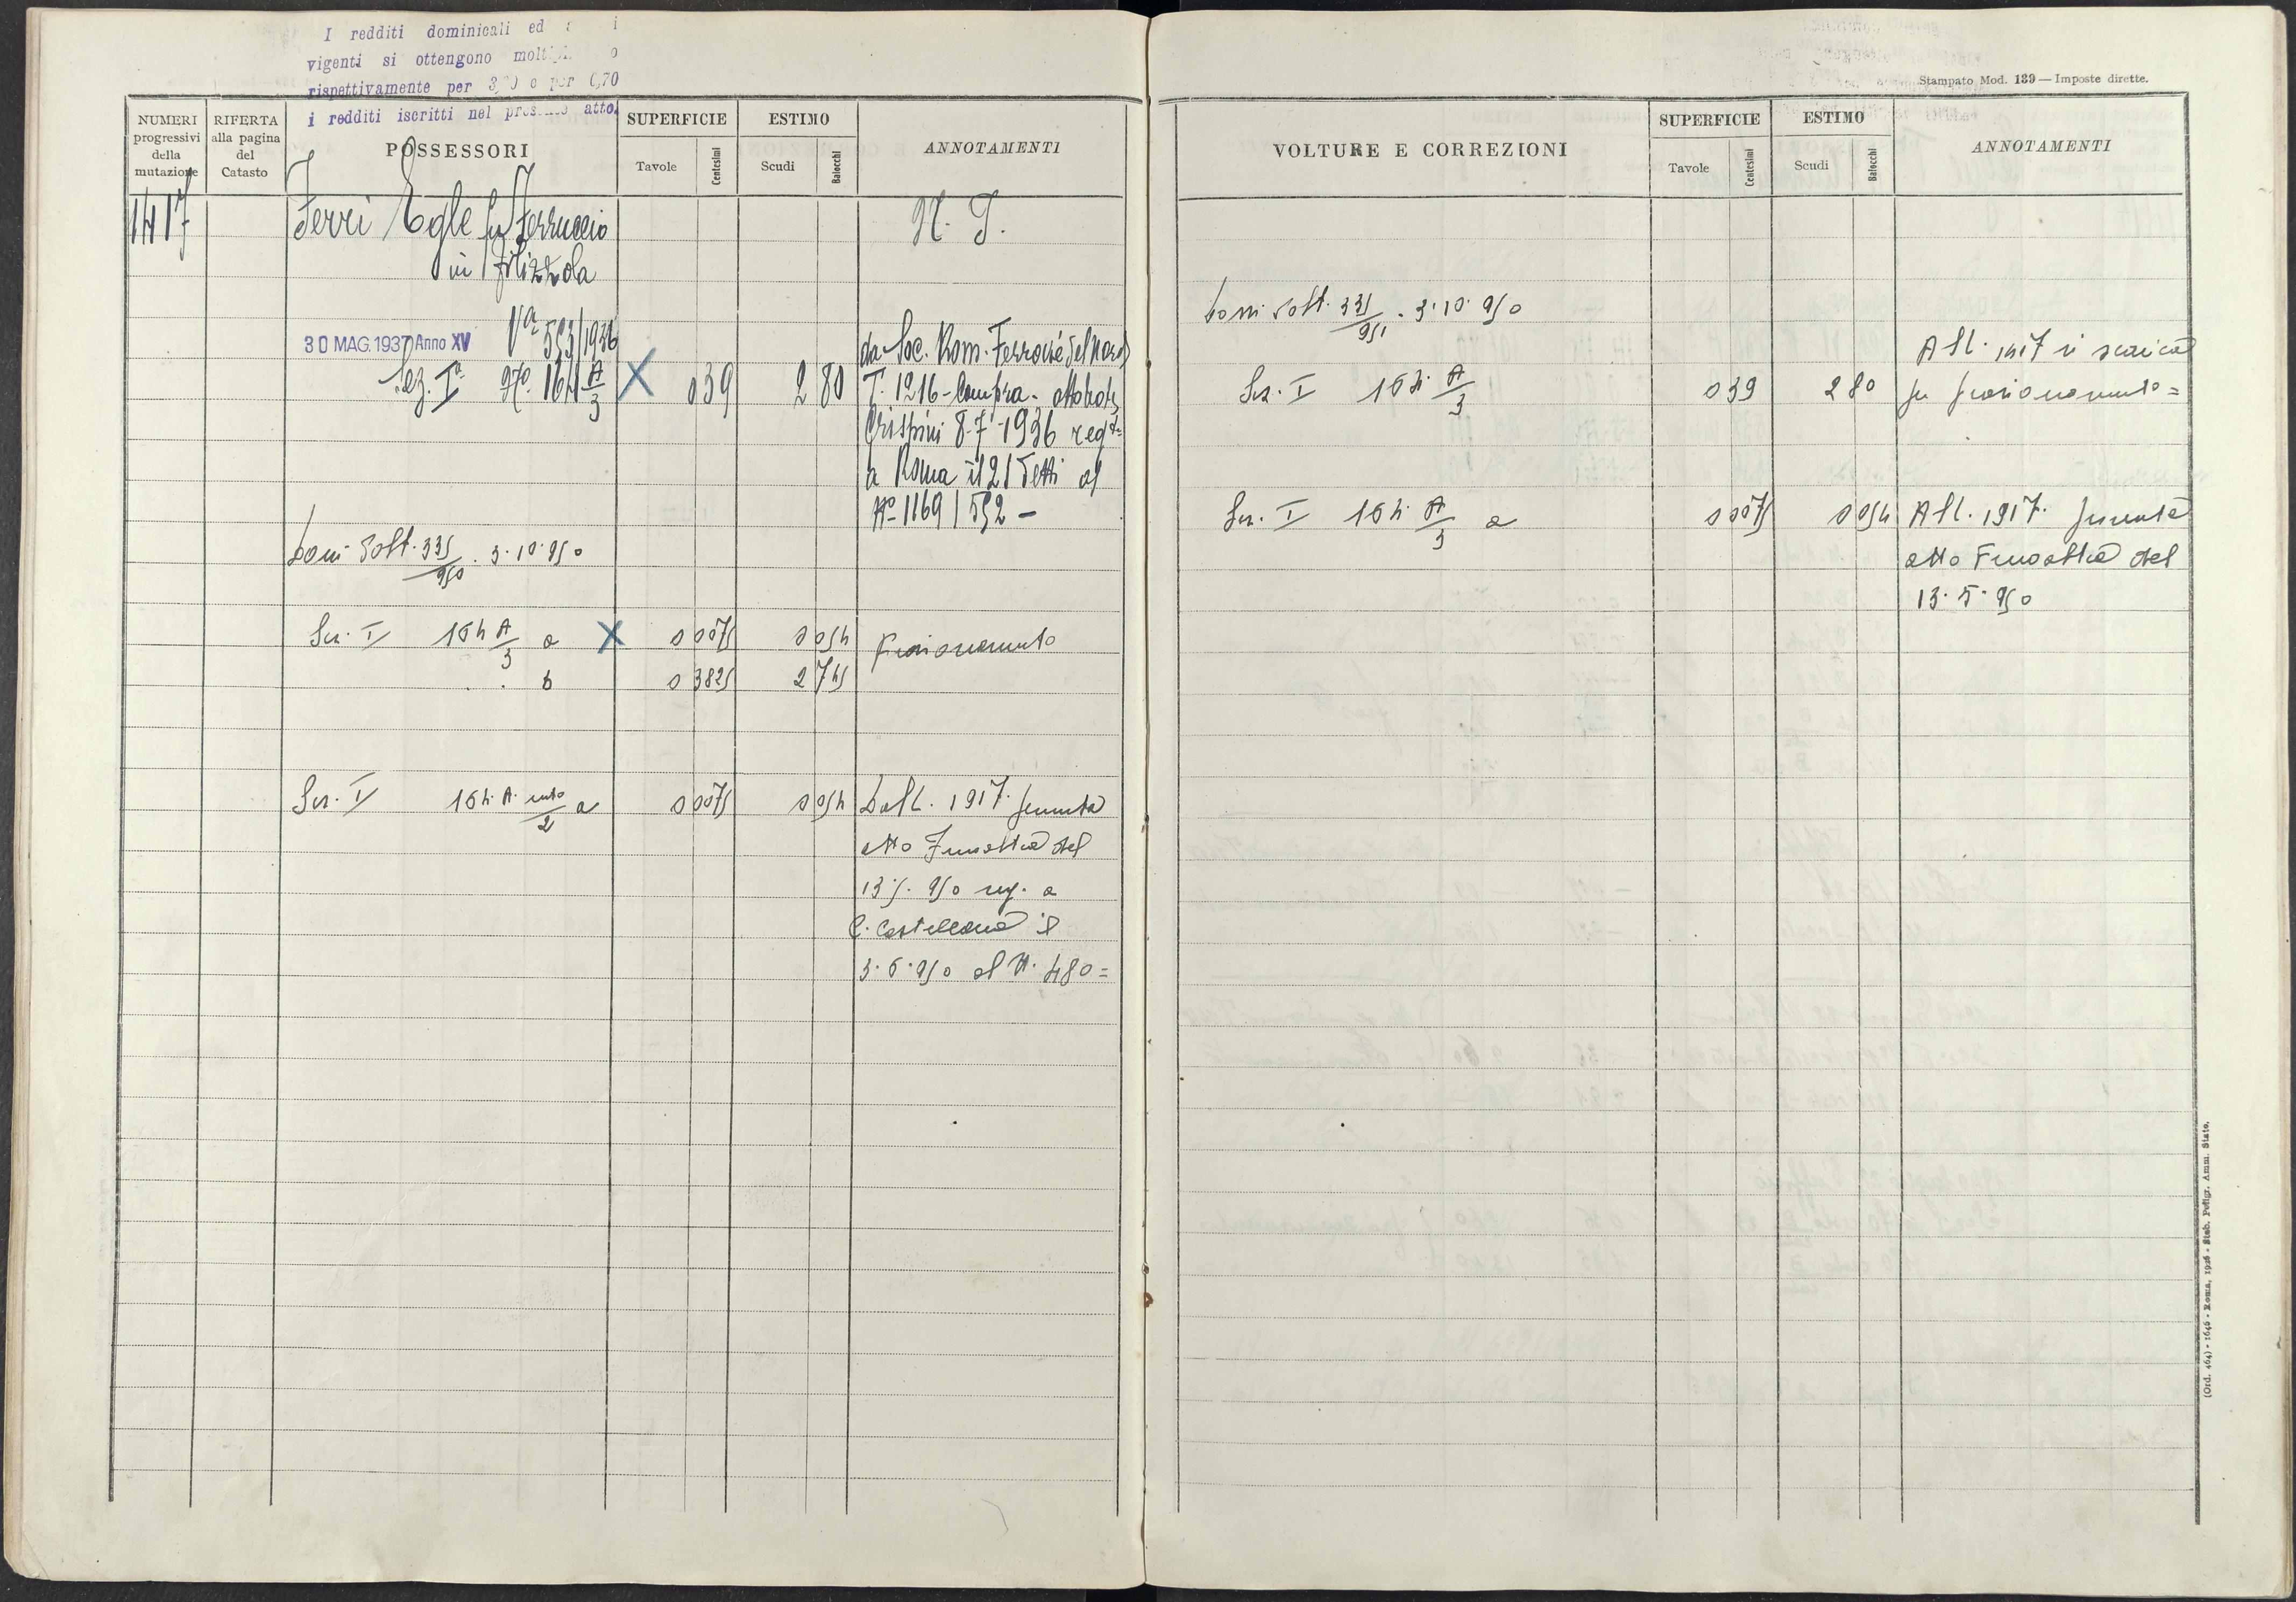 I redditi dominicali ed
vigenti si ottengono
rispettivamente per 3,  0 e per 0,70
i redditi iscritti nel  atto.
Stampato Mod. 139 — Imposte dirette.
NUMERI progressivi della mutazione
RIFERTA alla pagina del Catasto
POSSESSORI
SUPERFICIE
Tavole Centesimi
ESTIMO
Scudi Baiocchi
ANNOTAMENTI
1417 Ferri Egle fu Ferruccio N. T.
in Filizzola
30 MAG. 1937 Anno XV Vª 593/1936 da Soc. Rom. Ferrovie del Nord
Sez. Iª Nº 164 A/3 X 0 39 2 80 T. 1216 - Compra - atto
Crispini 8-7-1936 regto
a Roma il 21 detti al
Nº 1169/592 -
335/950 . 3.10.950
Sez. I 164 A/3 a X 0 0075 0 054 frazionamento
. . b 0 3825 2 745
Sez. I 164 A /2 a 0 0075 0 054 Dall. 1917 permuta
atto del
13.5.950 reg. a
C. Castellana il
3.6.950 al N. 480 =
VOLTURE E CORREZIONI
SUPERFICIE
Tavole Centesimi
ESTIMO
Scudi Baiocchi
ANNOTAMENTI
335/951 . 3.10.950
All. 1417 si scarica
Sez. I 164 A/3 0 39 2 80 per frazionamento =
Sez. I 164 A/3 a 0 0075 0 054 All. 1917. permuta
atto del
13.5.950
(Ord. 464) - 1646 - Roma, 1926 - Stab. Poligr. Amm. Stato.